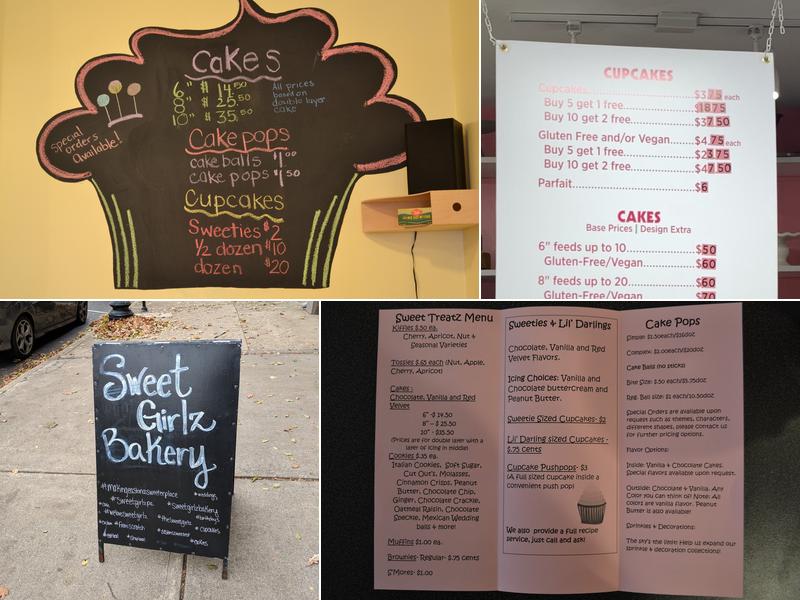 Cakes
6" $ 14.50
8" $ 25.50
10" $ 35.50
All prices
based on
double layer
cake
Special
orders
available!
Cake pops
cake balls $1.00
cake pops $1.50
Cupcakes
Sweeties $2
1/2 dozen $10
dozen $20
CUPCAKES
Cupcakes $3.75 each
Buy 5 get 1 free $18.75
Buy 10 get 2 free $37.50
Gluten Free and/or Vegan $4.75 each
Buy 5 get 1 free $23.75
Buy 10 get 2 free $47.50
Parfait $6
CAKES
Base Prices | Design Extra
6" feeds up to 10 $50
Gluten-Free/Vegan $60
8" feeds up to 20 $60
Gluten-Free/Vegan $70
Sweet
Girlz
Bakery
#makingeastonasweeterplace
#weddings
#sweetgirlzpc
#sweetgirlzbakery
#fromscratch
#cupcakes
#cakes
Sweet Treatz Menu
Kiffles $.50 ea.
Cherry, Apricot, Nut &
Seasonal Varieties
Tossies $.65 each (Nut, Apple,
Cherry, Apricot)
Cakes :
Chocolate, Vanilla and Red
Velvet
6" -$ 14.50
8" – $ 25.50
10" - $35.50
(Prices are for double layer with a
layer of icing in middle)
Cookies $.35 ea.
Italian Cookies, Soft Sugar,
Cut Out's, Molasses,
Cinnamon Crisps, Peanut
Butter, Chocolate Chip,
Ginger, Chocolate Crackle,
Oatmeal Raisin, Chocolate
Speckle, Mexican Wedding
balls & more!
Muffins $1.00 ea.
Brownies- Regular- $.75 cents
S'Mores- $1.00
Sweeties & Lil' Darlings
Chocolate, Vanilla and Red
Velvet Flavors.
Icing Choices: Vanilla and
Chocolate buttercream and
Peanut Butter.
Sweetie Sized Cupcakes- $2
Lil' Darling sized Cupcakes -
$.75 cents
Cupcake Pushpops- $3
(A full sized cupcake inside a
convenient push pop)
We also provide a full recipe
service, just call and ask!
Cake Pops
Simple: $1.50each/$16doz
Complex: $2.00each/$20doz
Cake Balls (no sticks)
Bite Size: $.50 each/$5.75doz
Reg. Ball size: $1 each/10.50doz
Special Orders are available upon
request such as themes, characters,
different shapes, please contact us
for further pricing options.
Flavor Options:
Inside: Vanilla & Chocolate Cakes.
Special flavors available upon request.
Outside: Chocolate & Vanilla. Any
Color you can think of! Note: All
colors are vanilla flavor. Peanut
Butter is also available!
Sprinkles & Decorations:
The sky's the limit! Help us expand our
sprinkle & decoration collections!